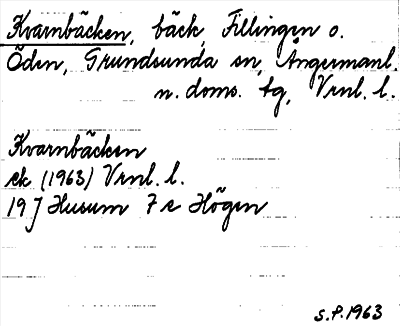 Kvarnbäcken, bäck, Fillingen o.
Öden, Grundsunda sn, Ångermanl.
n. doms. tg, Vrnl. l.
Kvarnbäcken
ek (1963) Vrnl. l.
19 J Husum 7 e Högen
S.P. 1963